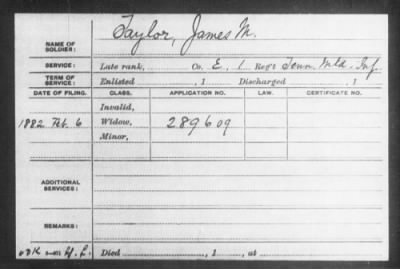 NAME OF SOLDIER: Taylor, James M.
SERVICE: Late rank, Co. E, 1 Reg't Tenn. Mtd. Inf.
TERM OF SERVICE: Enlisted , 1 Discharged , 1
DATE OF FILING. CLASS. APPLICATION NO. LAW. CERTIFICATE NO.
Invalid,
1882 Feb. 6 Widow, 289609
Minor,
ADDITIONAL SERVICES:
REMARKS:
Died , 1 , at